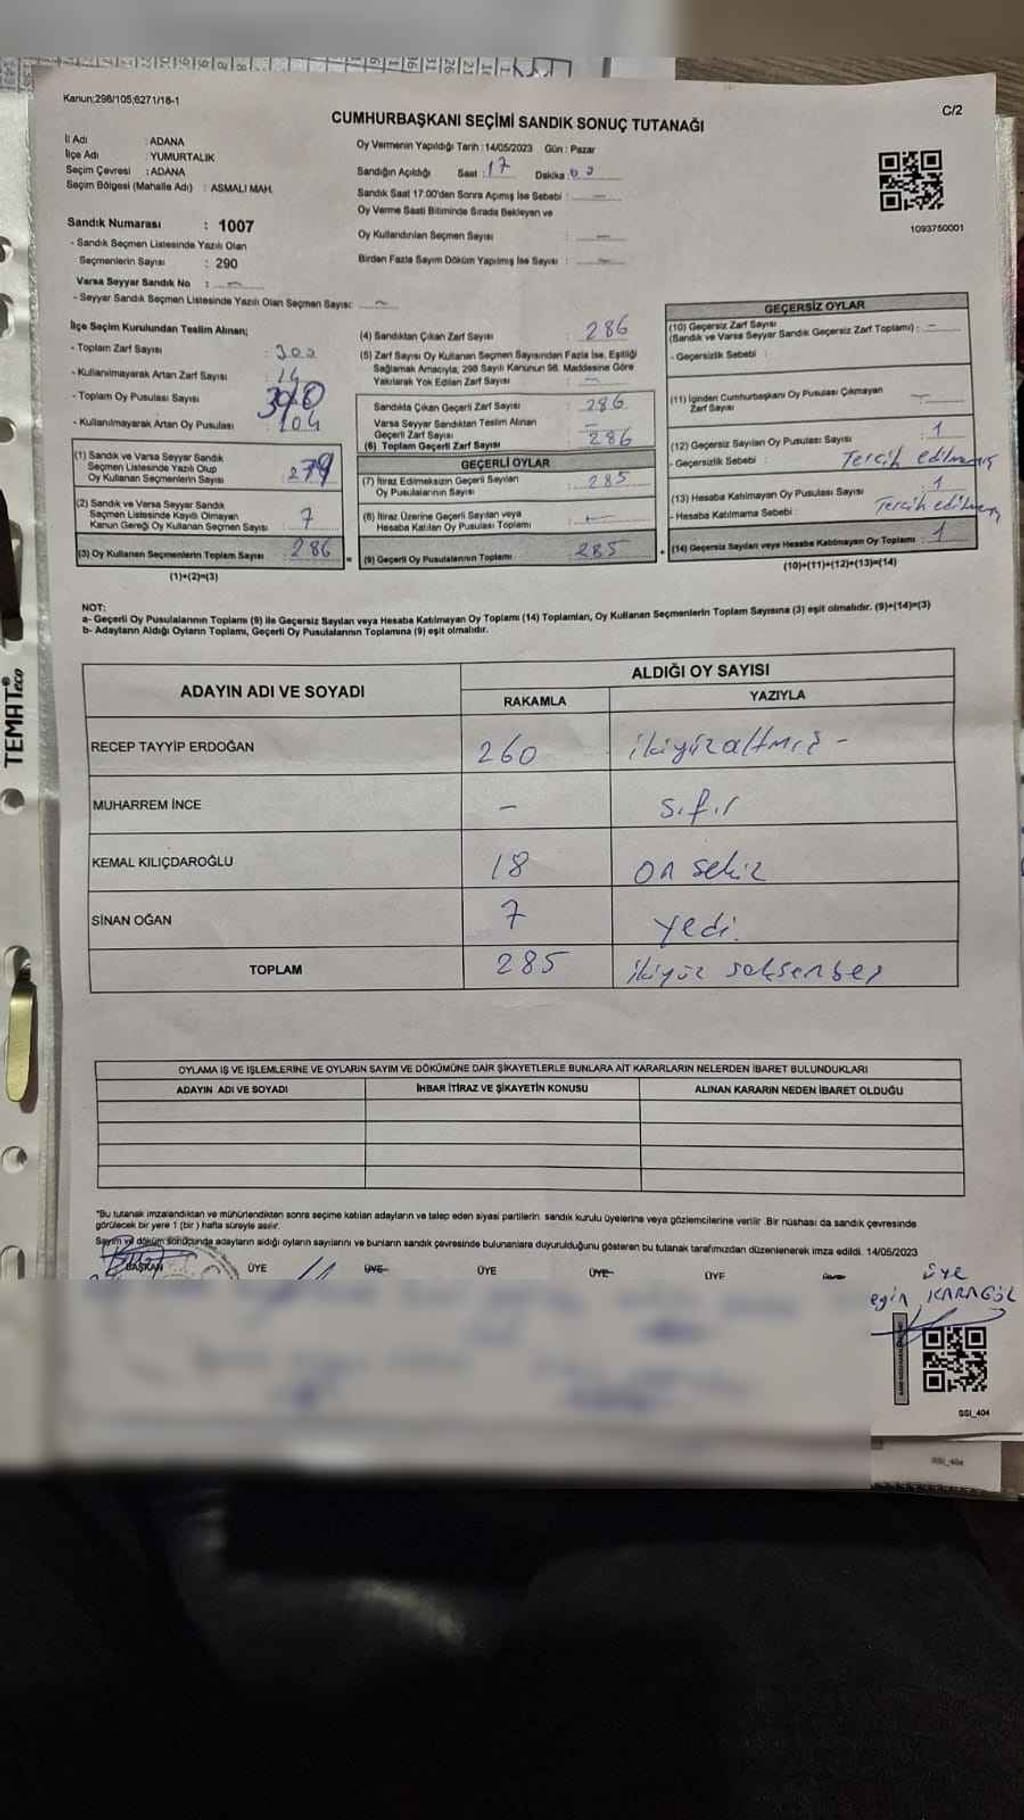 Kanun;298/105;6271/18-1
C/2
CUMHURBAŞKANI SEÇİMİ SANDIK SONUÇ TUTANAĞI
İl Adı : ADANA
İlçe Adı : YUMURTALIK
Seçim Çevresi : ADANA
Seçim Bölgesi (Mahalle Adı) : ASMALI MAH.
Sandık Numarası : 1007
- Sandık Seçmen Listesinde Yazılı Olan
Seçmenlerin Sayısı : 290
Varsa Seyyar Sandık No : -
- Seyyar Sandık Seçmen Listesinde Yazılı Olan Seçmen Sayısı: -
Oy Vermenin Yapıldığı Tarih : 14/05/2023 Gün : Pazar
Sandığın Açıldığı Saat : 17 Dakika :
Sandık Saat 17:00'den Sonra Açımış İse Sebebi : -
Oy Verme Saati Bitiminde Sırada Bekleyen ve
Oy Kullandırılan Seçmen Sayısı : -
Birden Fazla Sayım Döküm Yapılmış İse Sayısı : -
1093750001
İlçe Seçim Kurulundan Teslim Alınan;
- Toplam Zarf Sayısı : 300
- Kullanılmayarak Artan Zarf Sayısı : 14
- Toplam Oy Pusulası Sayısı
- Kullanılmayarak Artan Oy Pusulası : 104
(1) Sandık ve Varsa Seyyar Sandık
Seçmen Listesinde Yazılı Olup
Oy Kullanan Seçmenlerin Sayısı : 279
(2) Sandık ve Varsa Seyyar Sandık
Seçmen Listesinde Kayıtlı Olmayan
Kanun Gereği Oy Kullanan Seçmen Sayısı : 7
(3) Oy Kullanan Seçmenlerin Toplam Sayısı : 286
(1)+(2)=(3)
(4) Sandıktan Çıkan Zarf Sayısı : 286
(5) Zarf Sayısı Oy Kullanan Seçmen Sayısından Fazla İse, Eşitliği
Sağlamak Amacıyla, 298 Sayılı Kanunun 98. Maddesine Göre
Yakılarak Yok Edilen Zarf Sayısı : -
Sandıkta Çıkan Geçerli Zarf Sayısı : 286
Varsa Seyyar Sandıktan Teslim Alınan
Geçerli Zarf Sayısı : -
(6) Toplam Geçerli Zarf Sayısı : 286
GEÇERLİ OYLAR
(7) İtiraz Edilmeksizin Geçerli Sayılan
Oy Pusulalarının Sayısı : 285
(8) İtiraz Üzerine Geçerli Sayılan veya
Hesaba Katılan Oy Pusulası Toplamı : -
(9) Geçerli Oy Pusulalarının Toplamı : 285
GEÇERSİZ OYLAR
(10) Geçersiz Zarf Sayısı
(Sandık ve Varsa Seyyar Sandık Geçersiz Zarf Toplamı) : -
- Geçersizlik Sebebi :
(11) İçinden Cumhurbaşkanı Oy Pusulası Çıkmayan
Zarf Sayısı : -
(12) Geçersiz Sayılan Oy Pusulası Sayısı : 1
- Geçersizlik Sebebi : Tercih edilmemiş
(13) Hesaba Katılmayan Oy Pusulası Sayısı : 1
- Hesaba Katılmama Sebebi : Tercih
(14) Geçersiz Sayılan veya Hesaba Katılmayan Oy Toplamı : 1
(10)+(11)+(12)+(13)=(14)
NOT:
a- Geçerli Oy Pusulalarının Toplamı (9) ile Geçersiz Sayılan veya Hesaba Katılmayan Oy Toplamı (14) Toplamları, Oy Kullanan Seçmenlerin Toplam Sayısına (3) eşit olmalıdır. (9)+(14)=(3)
b- Adayların Aldığı Oyların Toplamı, Geçerli Oy Pusulalarının Toplamına (9) eşit olmalıdır.
ADAYIN ADI VE SOYADI
ALDIĞI OY SAYISI
RAKAMLA YAZIYLA
RECEP TAYYİP ERDOĞAN 260 ikiyüzaltmış -
MUHARREM İNCE - sıfır
KEMAL KILIÇDAROĞLU 18 on sekiz
SİNAN OĞAN 7 yedi.
TOPLAM 285 ikiyüz seksenbeş
OYLAMA İŞ VE İŞLEMLERİNE VE OYLARIN SAYIM VE DÖKÜMÜNE DAİR ŞİKAYETLERLE BUNLARA AİT KARARLARIN NELERDEN İBARET BULUNDUKLARI
ADAYIN ADI VE SOYADI İHBAR İTİRAZ VE ŞİKAYETİN KONUSU ALINAN KARARIN NEDEN İBARET OLDUĞU
"Bu tutanak imzalandıktan ve mühürlendikten sonra seçime katılan adayların ve talep eden siyasi partilerin sandık kurulu üyelerine veya gözlemcilerine verilir .Bir nüshası da sandık çevresinde
görülecek bir yere 1 (bir ) hafta süreyle asılır.
Sayım ve döküm sonucunda adayların aldığı oyların sayılarını ve bunların sandık çevresinde bulunanlara duyurulduğunu gösteren bu tutanak tarafımızdan düzenlenerek imza edildi. 14/05/2023
BAŞKAN ÜYE ÜYE ÜYE ÜYE ÜYE
üye
KARAGÖL
SSI_404
TEMAT eco